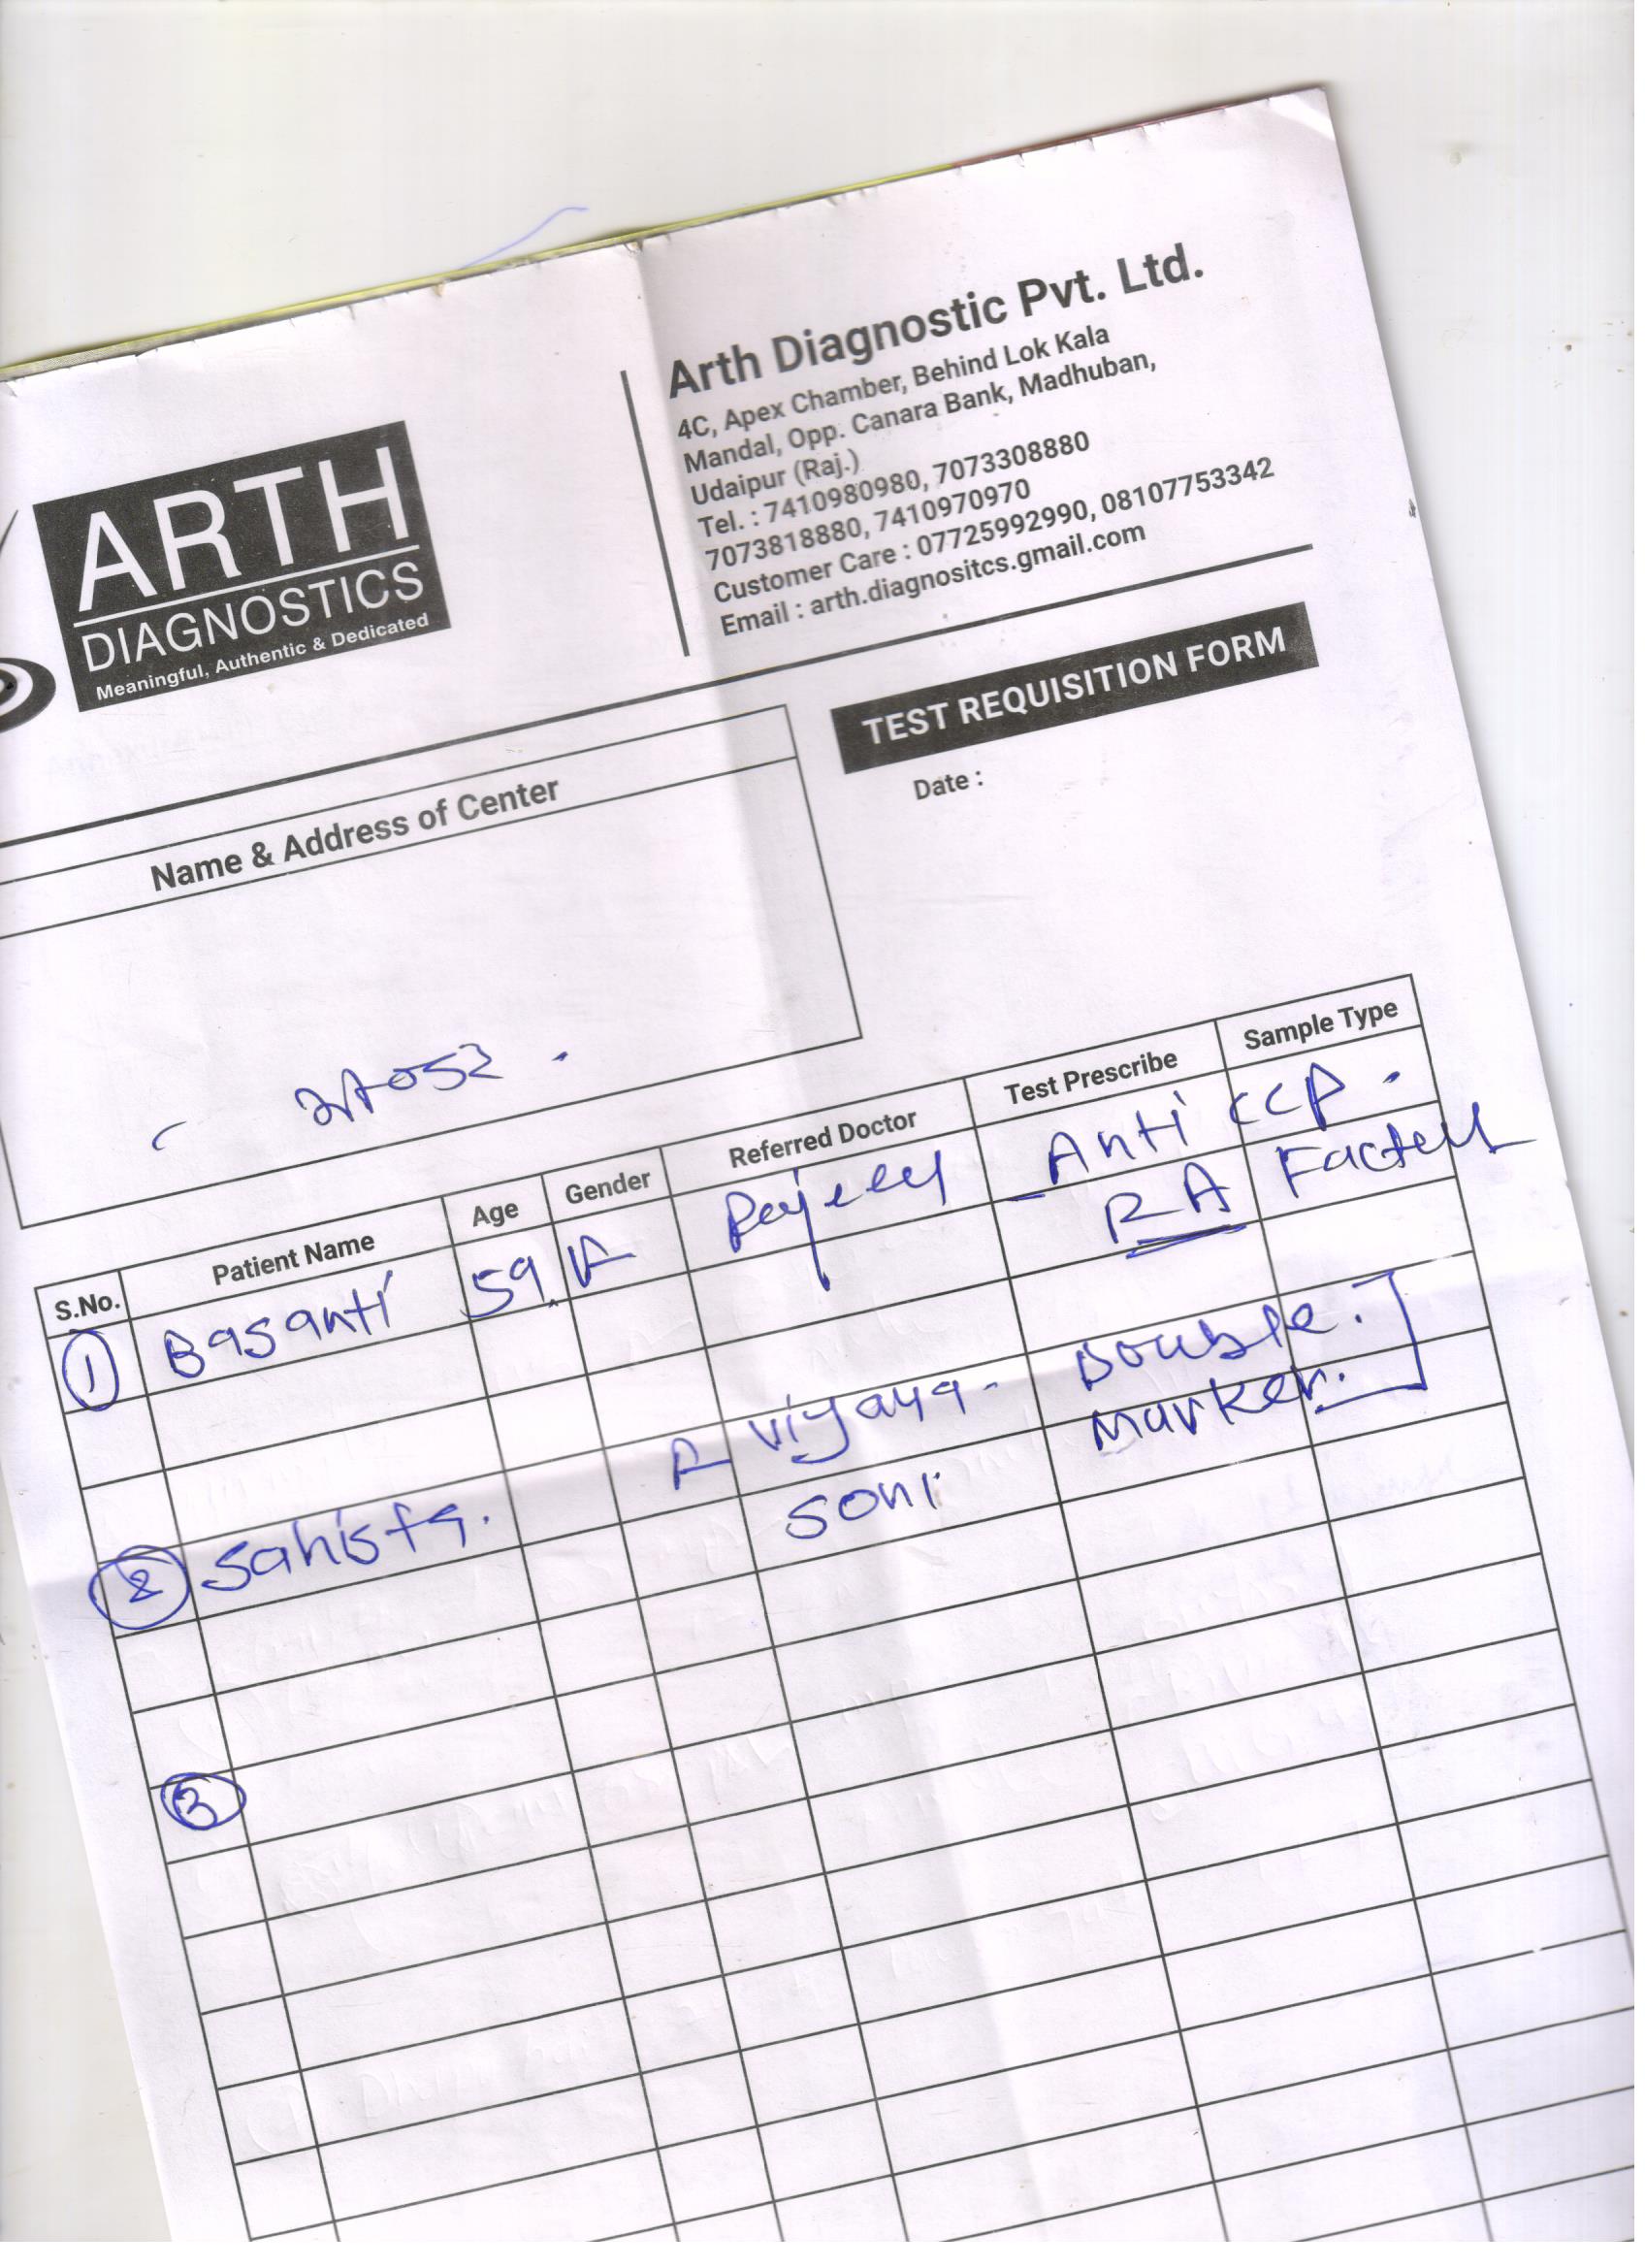 ARTH
DIAGNOSTICS
Meaningful, Authentic & Dedicated
Arth Diagnostic Pvt. Ltd.
4C, Apex Chamber, Behind Lok Kala
Mandal, Opp. Canara Bank, Madhuban,
Udaipur (Raj.)
Tel. : 7410980980, 7073308880
7073818880, 7410970970
Customer Care : 07725992990, 08107753342
Email : arth.diagnositcs.gmail.com
TEST REQUISITION FORM
Date :
Name & Address of Center
S.No. Patient Name Age Gender Referred Doctor Test Prescribe Sample Type
1 Basanti 59 F Anti CCP.
RA Factor
2 Sahista. F Vijaya. Double.
Soni Marker.
3